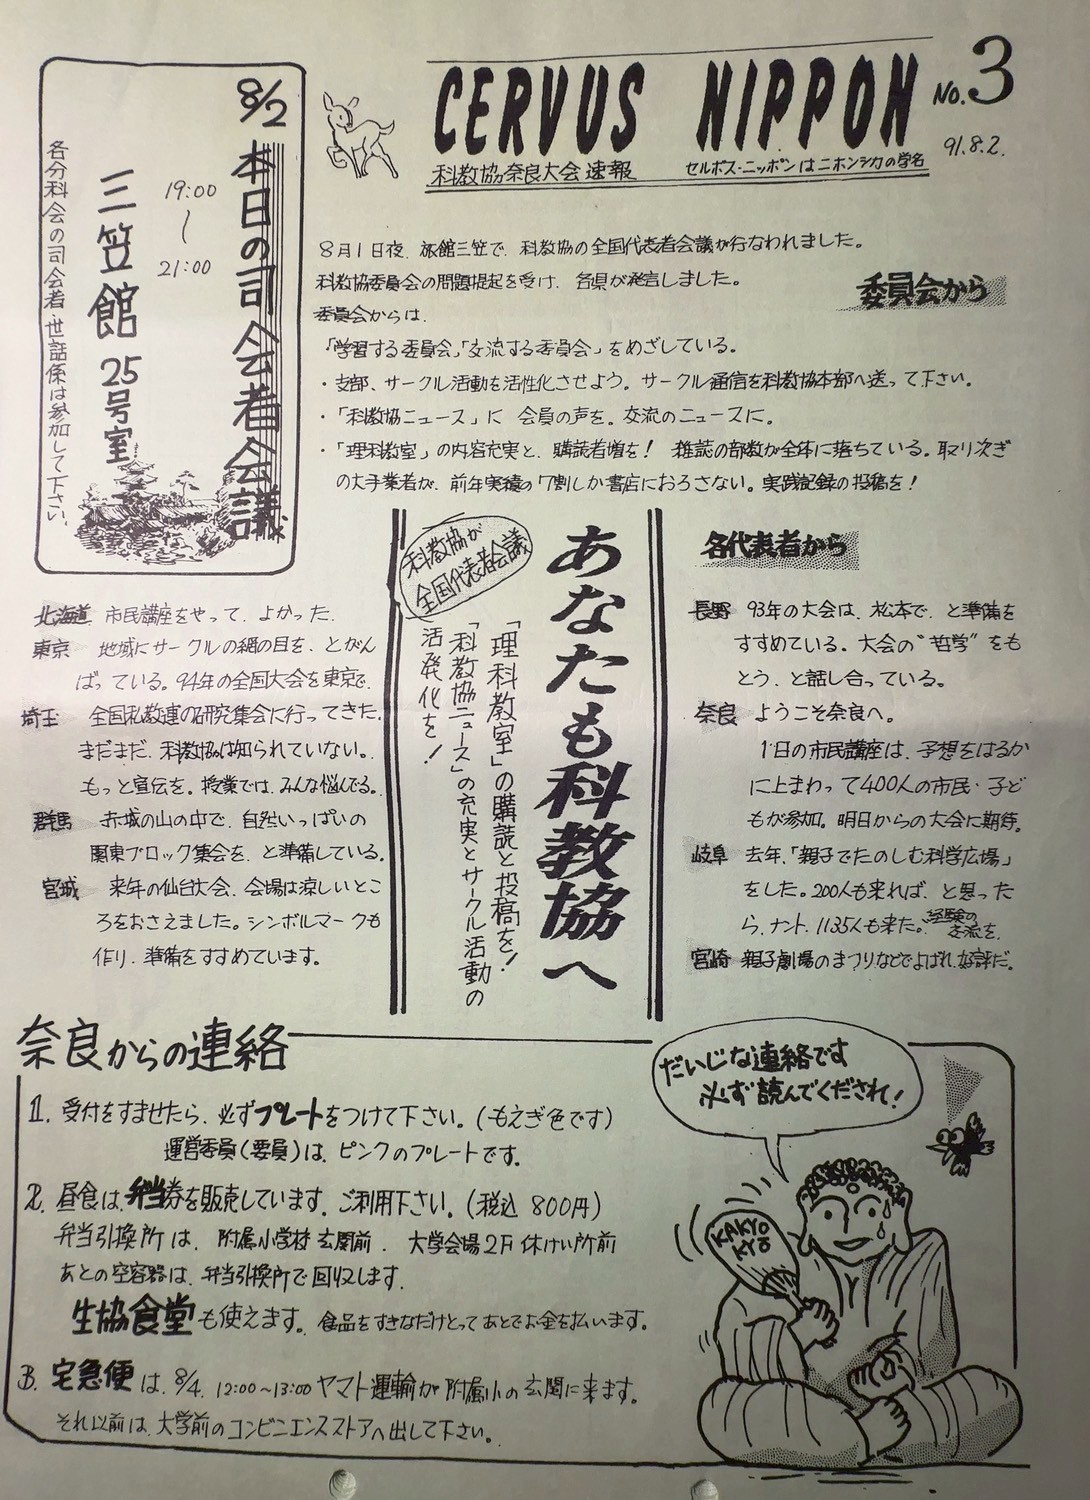 CERVUS NIPPON No.3
91.8.2.
科教協奈良大会速報 セルボス・ニッポンはニホンシカの学名
8/2 本日の司会者会議
19:00
〜
21:00
三笠館 25号室
各分科会の司会者・世話係は参加して下さい.
8月1日夜、旅館三笠で、科教協の全国代表者会議が行なわれました。
科教協委員会の問題提起を受け、各県が発言しました。
委員会から
委員会からは、
「学習する委員会」「交流する委員会」をめざしている。
・支部、サークル活動を活性化させよう。サークル通信を科教協本部へ送って下さい。
・「科教協ニュース」に 会員の声を。交流のニュースに。
・「理科教室」の内容充実と、購読者増を! 雑誌の部数が全体に落ちている。取り次ぎ
の大手業者が、前年実績の7割しか書店におろさない。実践記録の投稿を!
あなたも科教協へ
科教協が
全国代表者会議
「理科教室」の購読と投稿を!
「科教協ニュース」の充実とサークル活動の
活発化を!
北海道 市民講座をやって、よかった.
東京 地域にサークルの網の目を、とがん
ばっている。94年の全国大会を東京で.
埼玉 全国私教連の研究集会に行ってきた.
まだまだ、科教協は知られていない。
もっと宣伝を。授業では、みんな悩んでる。
群馬 赤城の山の中で、自然いっぱいの
関東ブロック集会を、と準備している。
宮城 来年の仙台大会、会場は涼しいとこ
ろをおさえました。シンボルマークも
作り、準備をすすめています。
各代表者から
長野 93年の大会は、松本で、と準備を
すすめている。大会の“哲学”をも
とう、と話し合っている。
奈良 ようこそ奈良へ。
1日の市民講座は、予想をはるか
に上まわって400人の市民・子ど
もが参加。明日からの大会に期待。
岐阜 去年、「親子でたのしむ科学広場」
をした。200人も来れば、と思った
ら、ナント、1135人も来た。経験の
交流を.
宮崎 親子劇場のまつりなどでよばれ、好評だ。
奈良からの連絡
1. 受付をすませたら、必ずプレートをつけて下さい。(もえぎ色です)
運営委員(要員)は、ピンクのプレートです。
2. 昼食は、弁当券を販売しています。ご利用下さい。(税込 800円)
弁当引換所は、附属小学校玄関前、大学会場2F休けい所前
あとの空容器は、弁当引換所で回収します.
生協食堂も使えます。食品をすきなだけとってあとでお金を払います。
3. 宅急便は、8/4. 12:00~13:00 ヤマト運輸が附属小の玄関に来ます。
それ以前は、大学前のコンビニエンスストアへ出して下さい。
だいじな連絡です
必ず読んでくだされ!
KAKYO
KYO